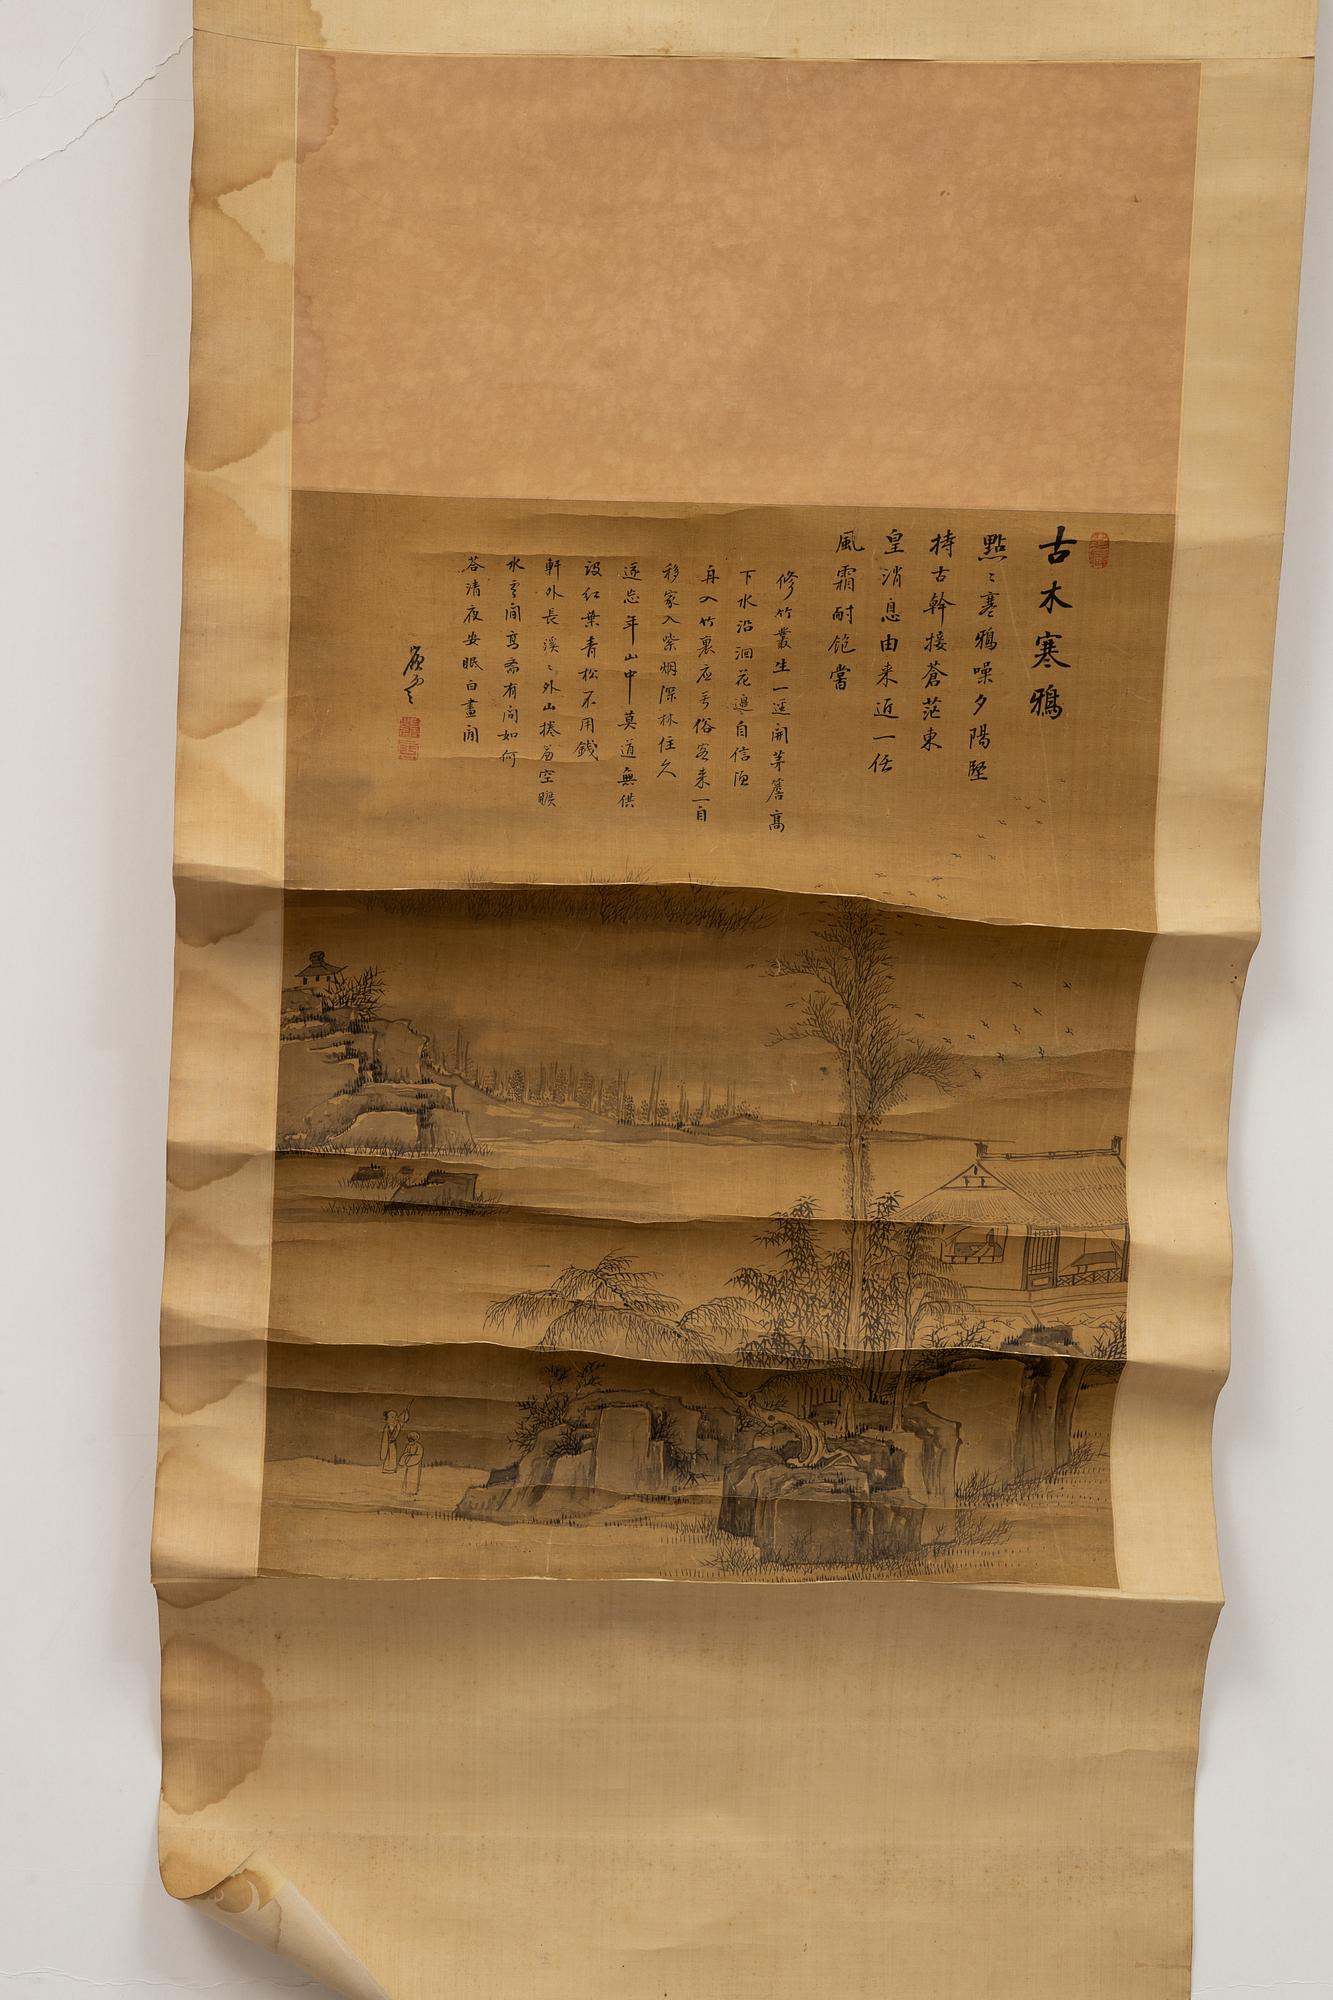 古木寒鴉
點〻寒鴉噪夕陽堅
持古幹接蒼茫東
皇消息由来近一任
風霜耐飽嘗
修竹叢生一逕開茅簷高
下水沿洄花邊自信
舟入竹裏應無俗客来一自
移家入紫烟深林住久
遂忘年山中莫道無供
設紅葉青松不用錢
軒外長溪〻外山捲簾空曠
水雲間高齋有問如何
荅清夜安眠白晝閒